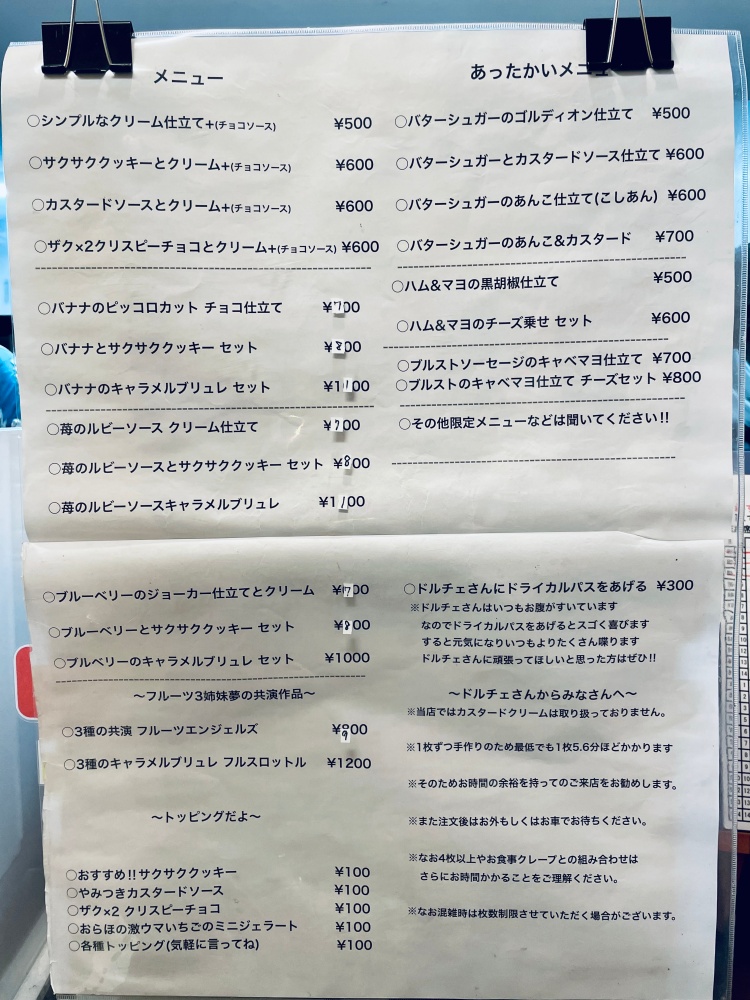 メニュー
○シンプルなクリーム仕立て+(チョコソース) ¥500
○サクサククッキーとクリーム+(チョコソース) ¥600
○カスタードソースとクリーム+(チョコソース) ¥600
○ザク×2クリスピーチョコとクリーム+(チョコソース) ¥600
○バナナのピッコロカット チョコ仕立て ¥700
○バナナとサクサククッキー セット ¥800
○バナナのキャラメルブリュレ セット ¥1100
○苺のルビーソース クリーム仕立て ¥700
○苺のルビーソースとサクサククッキー セット ¥800
○苺のルビーソースキャラメルブリュレ ¥1100
○ブルーベリーのジョーカー仕立てとクリーム ¥700
○ブルーベリーとサクサククッキー セット ¥800
○ブルベリーのキャラメルブリュレ セット ¥1000
〜フルーツ3姉妹夢の共演作品〜
○3種の共演 フルーツエンジェルズ ¥900
○3種のキャラメルブリュレ フルスロットル ¥1200
〜トッピングだよ〜
○おすすめ!!サクサククッキー ¥100
○やみつきカスタードソース ¥100
○ザク×2 クリスピーチョコ ¥100
○おらほの激ウマいちごのミニジェラート ¥100
○各種トッピング(気軽に言ってね) ¥100
あったかいメニュー
○バターシュガーのゴルディオン仕立て ¥500
○バターシュガーとカスタードソース仕立て ¥600
○バターシュガーのあんこ仕立て(こしあん) ¥600
○バターシュガーのあんこ&カスタード ¥700
○ハム&マヨの黒胡椒仕立て ¥500
○ハム&マヨのチーズ乗せ セット ¥600
○ブルストソーセージのキャベマヨ仕立て ¥700
○ブルストのキャベマヨ仕立て チーズセット ¥800
○その他限定メニューなどは聞いてください!!
○ドルチェさんにドライカルパスをあげる ¥300
※ドルチェさんはいつもお腹がすいています
なのでドライカルパスをあげるとスゴく喜びます
すると元気になりいつもよりたくさん喋ります
ドルチェさんに頑張ってほしいと思った方はぜひ!!
〜ドルチェさんからみなさんへ〜
※当店ではカスタードクリームは取り扱っておりません。
※1枚ずつ手作りのため最低でも1枚5.6分ほどかかります
※そのためお時間の余裕を持ってのご来店をお勧めします。
※また注文後はお外もしくはお車でお待ちください。
※なお4枚以上やお食事クレープとの組み合わせは
さらにお時間かかることをご理解ください。
※なお混雑時は枚数制限させていただく場合がございます。